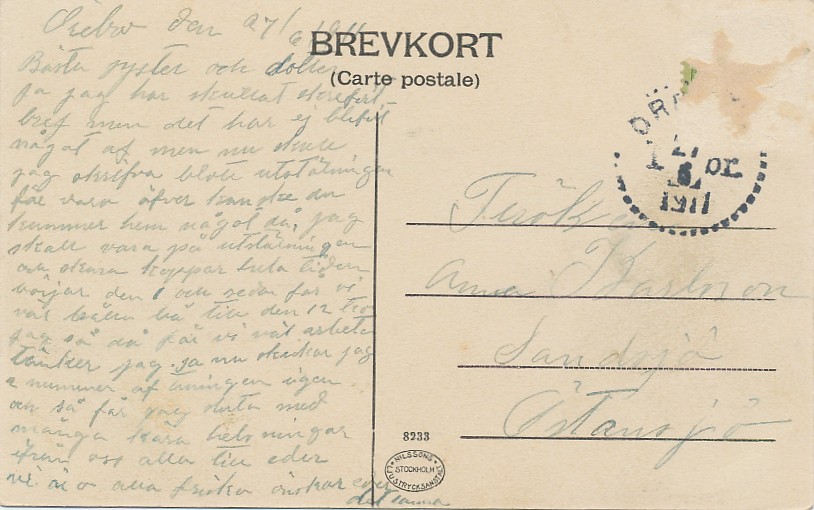 Örebro den 27/6 1911
BREVKORT
(Carte postale)
Bästa syster och dotter
ja jag har skullat skrefvit
bref men det har ej blifvit
något af men nu skulle
jag skrifva blott utstälningen
får vara öfver kanske du
kummer hem något då, jag
skall vara på utstälningen
och skura koppar hela tiden
börjar den 1 och sedan får vi
väl hålla på till den 12
jag så då får vi väl arbeta
tänker jag. ja nu skickar jag
2 nummer af tidningen igen
och så får jag sluta med
många kära helsningar
ifrån oss alla till eder
vi är alla friska önskar eder
det samma
ÖRE
27
6
1911
1 or.
Fröken
Anna Karlsson
Sandsjö
Östansjö
8233
NILSSONS
STOCKHOLM
LJUSTRYCKSANSTALT